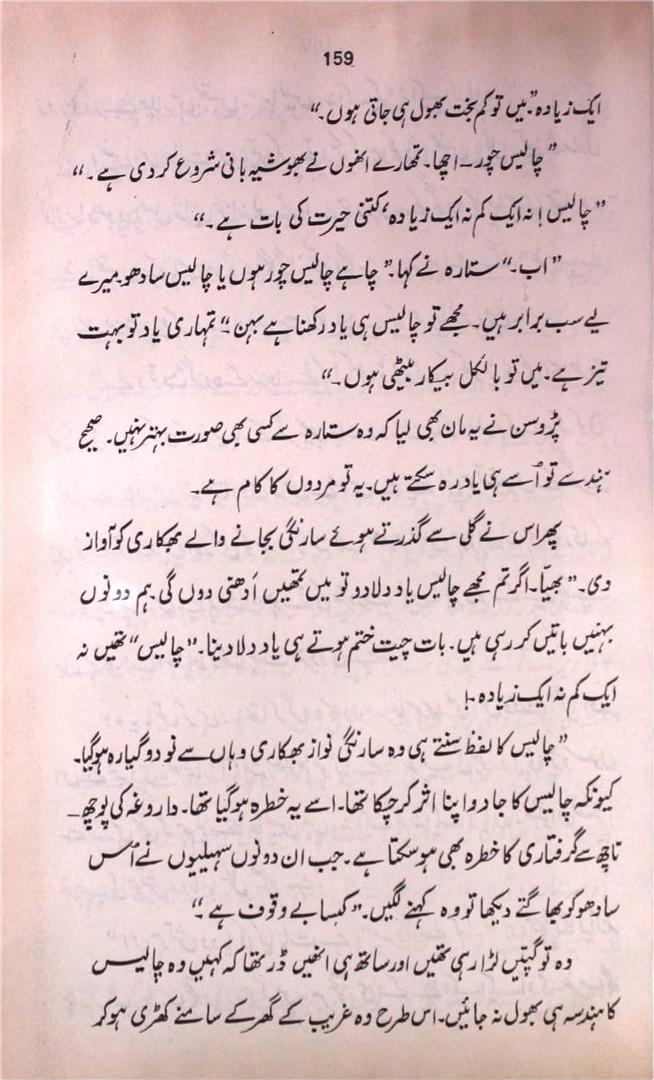 159
ایک زیادہ" میں تو کم بخت بھول ہی جاتی ہوں۔"
"چالیس چور۔ اچھا۔ تمھارے انھوں نے بھوشیہ بانی شروع کر دی ہے۔"
"چالیس! نہ ایک کم نہ ایک زیادہ، کتنی حیرت کی بات ہے۔"
"اب۔" ستارہ نے کہا۔ "چاہے چالیس چور ہوں یا چالیس سادھو میرے
لیے سب برابر ہیں۔ مجھے تو چالیس ہی یاد رکھنا ہے بہن۔" تمہاری یاد تو بہت
تیز ہے۔ میں تو بالکل بیکار بیٹھی ہوں۔"
پڑوسن نے یہ مان بھی لیا کہ وہ ستارہ سے کسی بھی صورت بہتر نہیں۔ صحیح
ہندسے تو اُسے ہی یاد رہ سکتے ہیں۔ یہ تو مردوں کا کام ہے۔
پھر اس نے گلی سے گذرتے ہوئے سارنگی بجانے والے بھکاری کو آواز
دی۔ "بھیّا۔ اگر تم مجھے چالیس یاد دلا دو تو میں تمھیں اَدھنی دوں گی۔ ہم دونوں
بہنیں باتیں کر رہی ہیں۔ بات چیت ختم ہوتے ہی یاد دلا دینا۔ "چالیس" تھیں نہ
ایک کم نہ ایک زیادہ۔!
"چالیس کا لفظ سنتے ہی وہ سارنگی نواز بھکاری وہاں سے نو دو گیارہ ہو گیا۔
کیونکہ چالیس کا جادو اپنا اثر کر چکا تھا۔ اسے یہ خطرہ ہو گیا تھا۔ داروغہ کی پوچھ۔
تاچھ سے گرفتاری کا خطرہ بھی ہو سکتا ہے۔ جب ان دونوں سہیلیوں نے اُس
سادھو کو بھاگتے دیکھا تو وہ کہنے لگیں۔ "کیسا بے وقوف ہے۔"
وہ تو گپیّں لڑا رہی تھیں اور ساتھ ہی انھیں ڈر تھا کہ کہیں وہ چالیس
کا ہندسہ ہی بھول نہ جائیں۔ اس طرح وہ غریب کے گھر کے سامنے کھڑی ہو کر